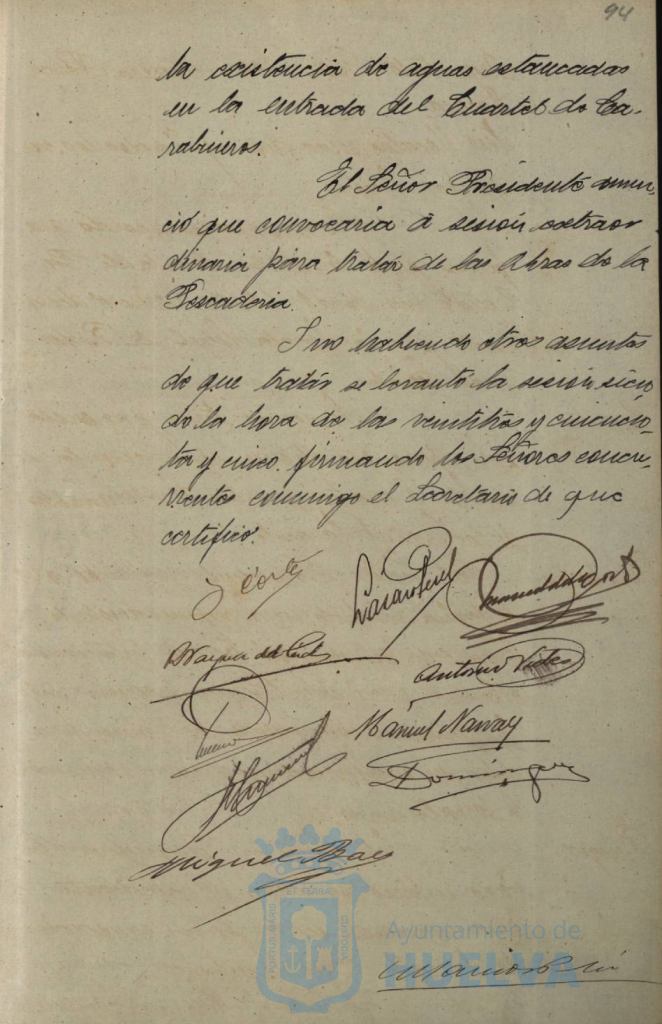 94
la existencia de aguas estancadas
en la entrada del Cuartel de Ca-
rabineros.
El Señor Presidente anun-
ció que convocaria á sesión extraor
dinaria para tratar de las Obras de la
Pescaderia.
Y no habiendo otros asuntos
de que tratar se levantó la sesión sien-
do la hora de las veintitrés y cincuen-
ta y cinco. firmando los Señores concu-
rrentes conmigo el Secretario de que
certifico.
Antonio Vides
Manuel Narvay
Domínguez
Miguel Baez
PORTUS MARIS ET TERRÆ CUSTODIA
Ayuntamiento de
HUELVA